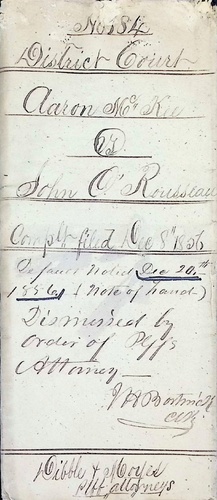 No 134
District Court
Aaron McKee
vs
John O'Rousseau
Complt filed Dec 8th 1856
Default Noted Dec 20th
1856 (Note of hand)
Dismissed by
order of Plffs
Attorney
Clk
Dibble & Moyes
Plff attorneys